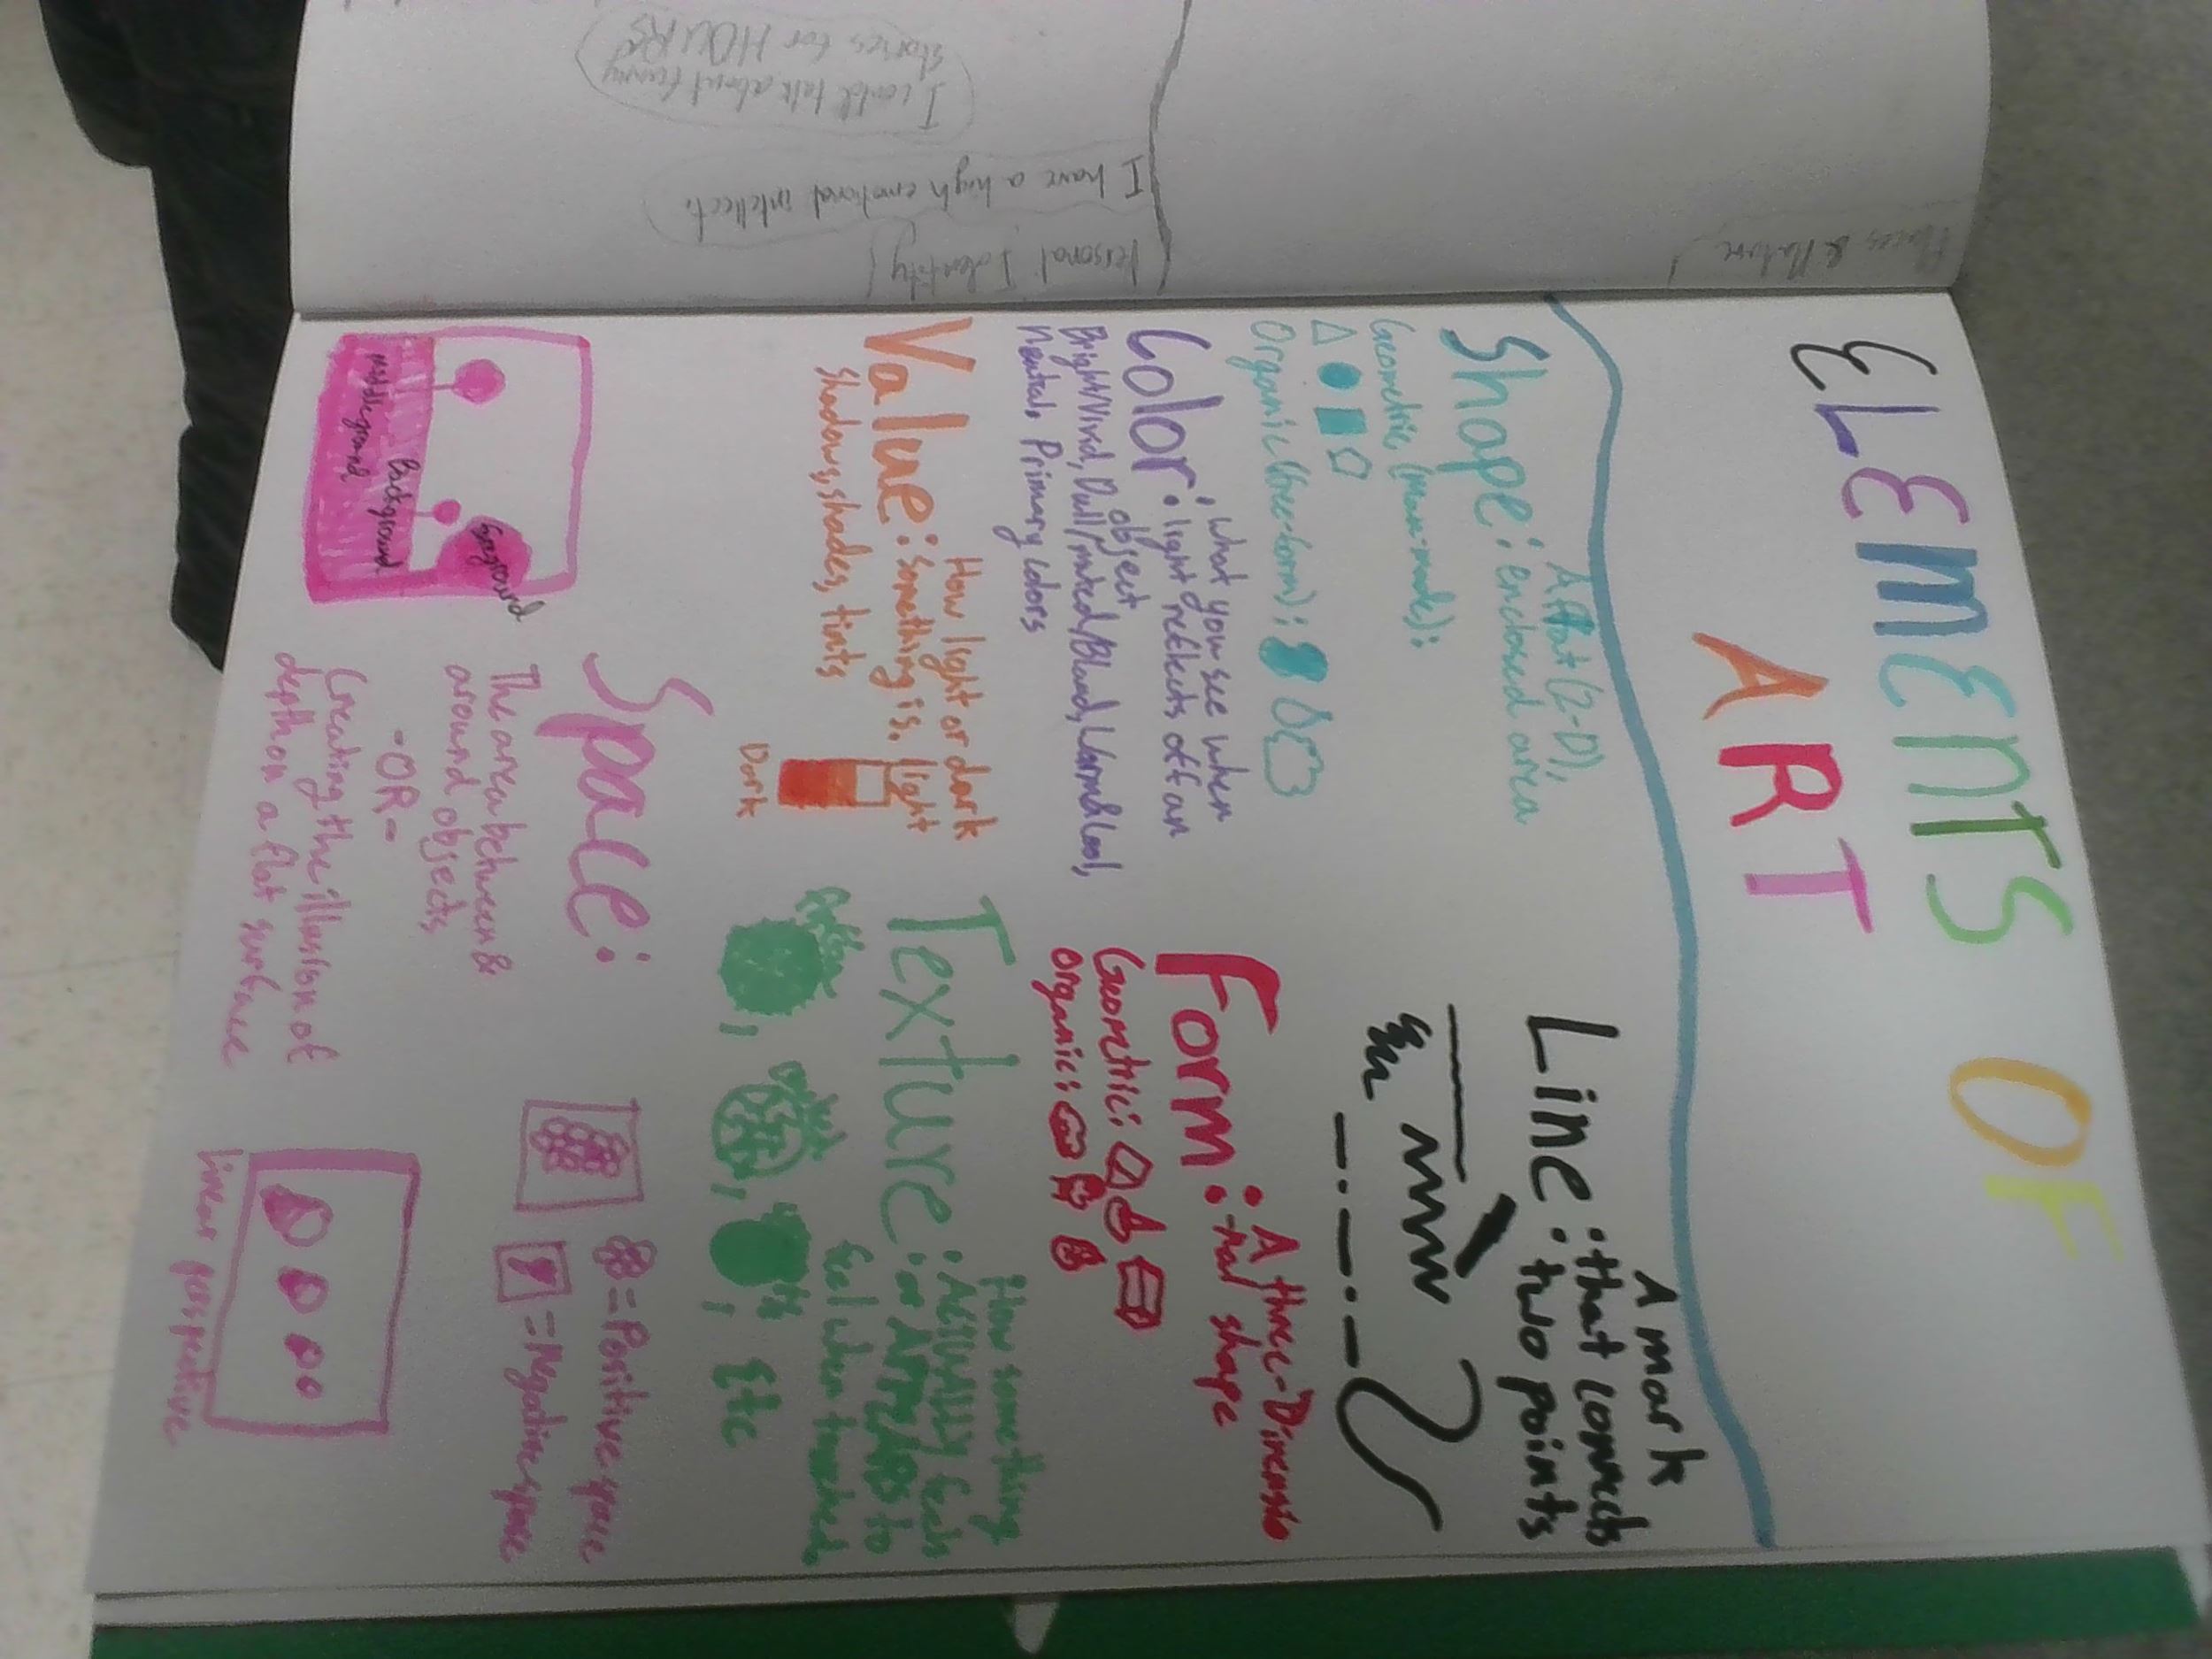 ELEMENTS OF
ART
Shape: A flat (2-D),
enclosed area
Geometric (man-made):
Organic (free-form):
Color: What you see when
light reflects off an
object
Bright/Vivid, Dull/muted/Bland, Warm & Cool,
Neutral, Primary colors
Value: How light or dark
something is. light
Shadows, shades, tints
Dark
Line: A mark
that connects
two points
Form: A three-Dimensio
nal shape
Geometric:
Organic:
Texture: How something
ACTUALLY feels
or APPEARS to
feel when touched.
, , , Etc
Space:
The area between &
around objects
-OR-
Creating the illusion of
depth on a flat surface
Background
Middleground
= Positive space
= Negative space
linear perspective
Personal Identity
I have a high emotional intellect.
I could talk about funny
stories for HOURS
Places & Nature